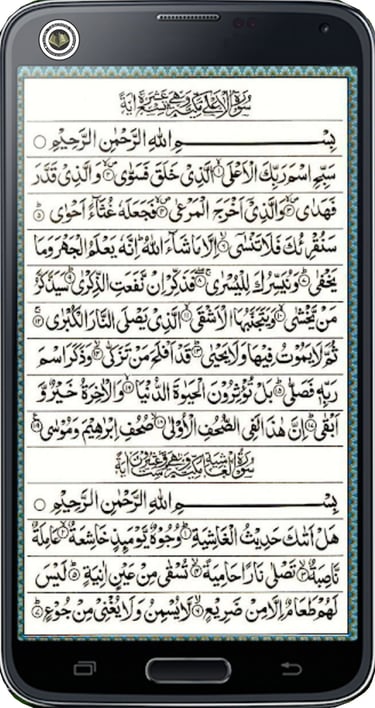 سورة الاعلى مكية وهي تسع عشرة اية
بِسْمِ اللهِ الرَّحْمٰنِ الرَّحِيْمِ ○
سَبِّحِ اسْمَ رَبِّكَ الْاَعْلَى ۙ﴿۱﴾ الَّذِیْ خَلَقَ فَسَوّٰى ۪ۙ﴿۲﴾ وَالَّذِیْ قَدَّرَ
فَهَدٰى ۪ۙ﴿۳﴾ وَالَّذِیْۤ اَخْرَجَ الْمَرْعٰى ۪ۙ﴿۴﴾ فَجَعَلَهٗ غُثَآءً اَحْوٰى ؕ﴿۵﴾
سَنُقْرِئُكَ فَلَا تَنْسٰۤى ۙ﴿۶﴾ اِلَّا مَا شَآءَ اللهُ ؕ اِنَّهٗ یَعْلَمُ الْجَهْرَ وَمَا
یَخْفٰى ؕ﴿۷﴾ وَنُیَسِّرُكَ لِلْیُسْرٰى ۚۖ﴿۸﴾ فَذَكِّرْ اِنْ نَّفَعَتِ الذِّكْرٰى ؕ﴿۹﴾ سَیَذَّكَّرُ
مَنْ یَّخْشٰى ۙ﴿۱۰﴾ وَیَتَجَنَّبُهَا الْاَشْقَى ۙ﴿۱۱﴾ الَّذِیْ یَصْلَى النَّارَ الْكُبْرٰى ۚ﴿۱۲﴾
ثُمَّ لَا یَمُوْتُ فِیْهَا وَلَا یَحْیٰى ؕ﴿۱۳﴾ قَدْ اَفْلَحَ مَنْ تَزَكّٰى ۙ﴿۱۴﴾ وَذَكَرَ اسْمَ
رَبِّهٖ فَصَلّٰى ؕ﴿۱۵﴾ بَلْ تُؤْثِرُوْنَ الْحَیٰوةَ الدُّنْیَا ۫ۖ﴿۱۶﴾ وَالْاٰخِرَةُ خَیْرٌ وَّ
اَبْقٰى ؕ﴿۱۷﴾ اِنَّ هٰذَا لَفِی الصُّحُفِ الْاُوْلٰى ۙ﴿۱۸﴾ صُحُفِ اِبْرٰهِیْمَ وَمُوْسٰى ۠﴿۱۹﴾
سورة الغاشية مكية وهي ست وعشرون اية
بِسْمِ اللهِ الرَّحْمٰنِ الرَّحِيْمِ ○
هَلْ اَتٰىكَ حَدِیْثُ الْغَاشِیَةِ ؕ﴿۱﴾ وُجُوْهٌ یَّوْمَئِذٍ خَاشِعَةٌ ۙ﴿۲﴾ عَامِلَةٌ
نَّاصِبَةٌ ۙ﴿۳﴾ تَصْلٰى نَارًا حَامِیَةً ۙ﴿۴﴾ تُسْقٰى مِنْ عَیْنٍ اٰنِیَةٍ ؕ﴿۵﴾ لَیْسَ
لَهُمْ طَعَامٌ اِلَّا مِنْ ضَرِیْعٍ ۙ﴿۶﴾ لَّا یُسْمِنُ وَلَا یُغْنِیْ مِنْ جُوْعٍ ؕ﴿۷﴾